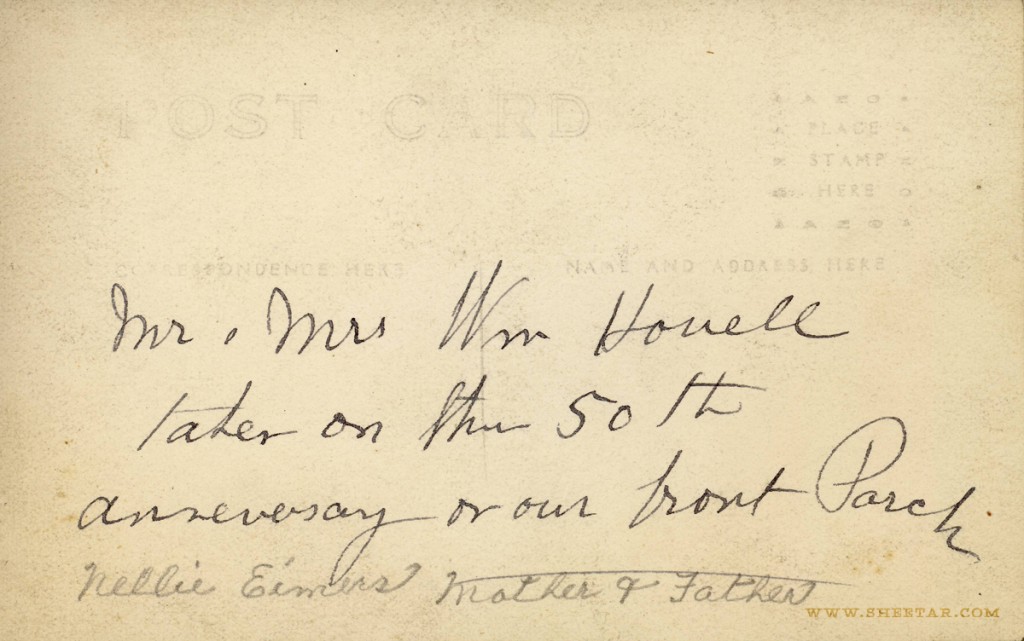 POST CARD
AZO
PLACE
STAMP
HERE
AZO
CORRESPONDENCE HERE
NAME AND ADDRESS HERE
Mr & Mrs Wm Howell
taken on thir 50th
anneversay on our front Porch
Nellie Eimers' Mother & Father
WWW.SHEETAR.COM